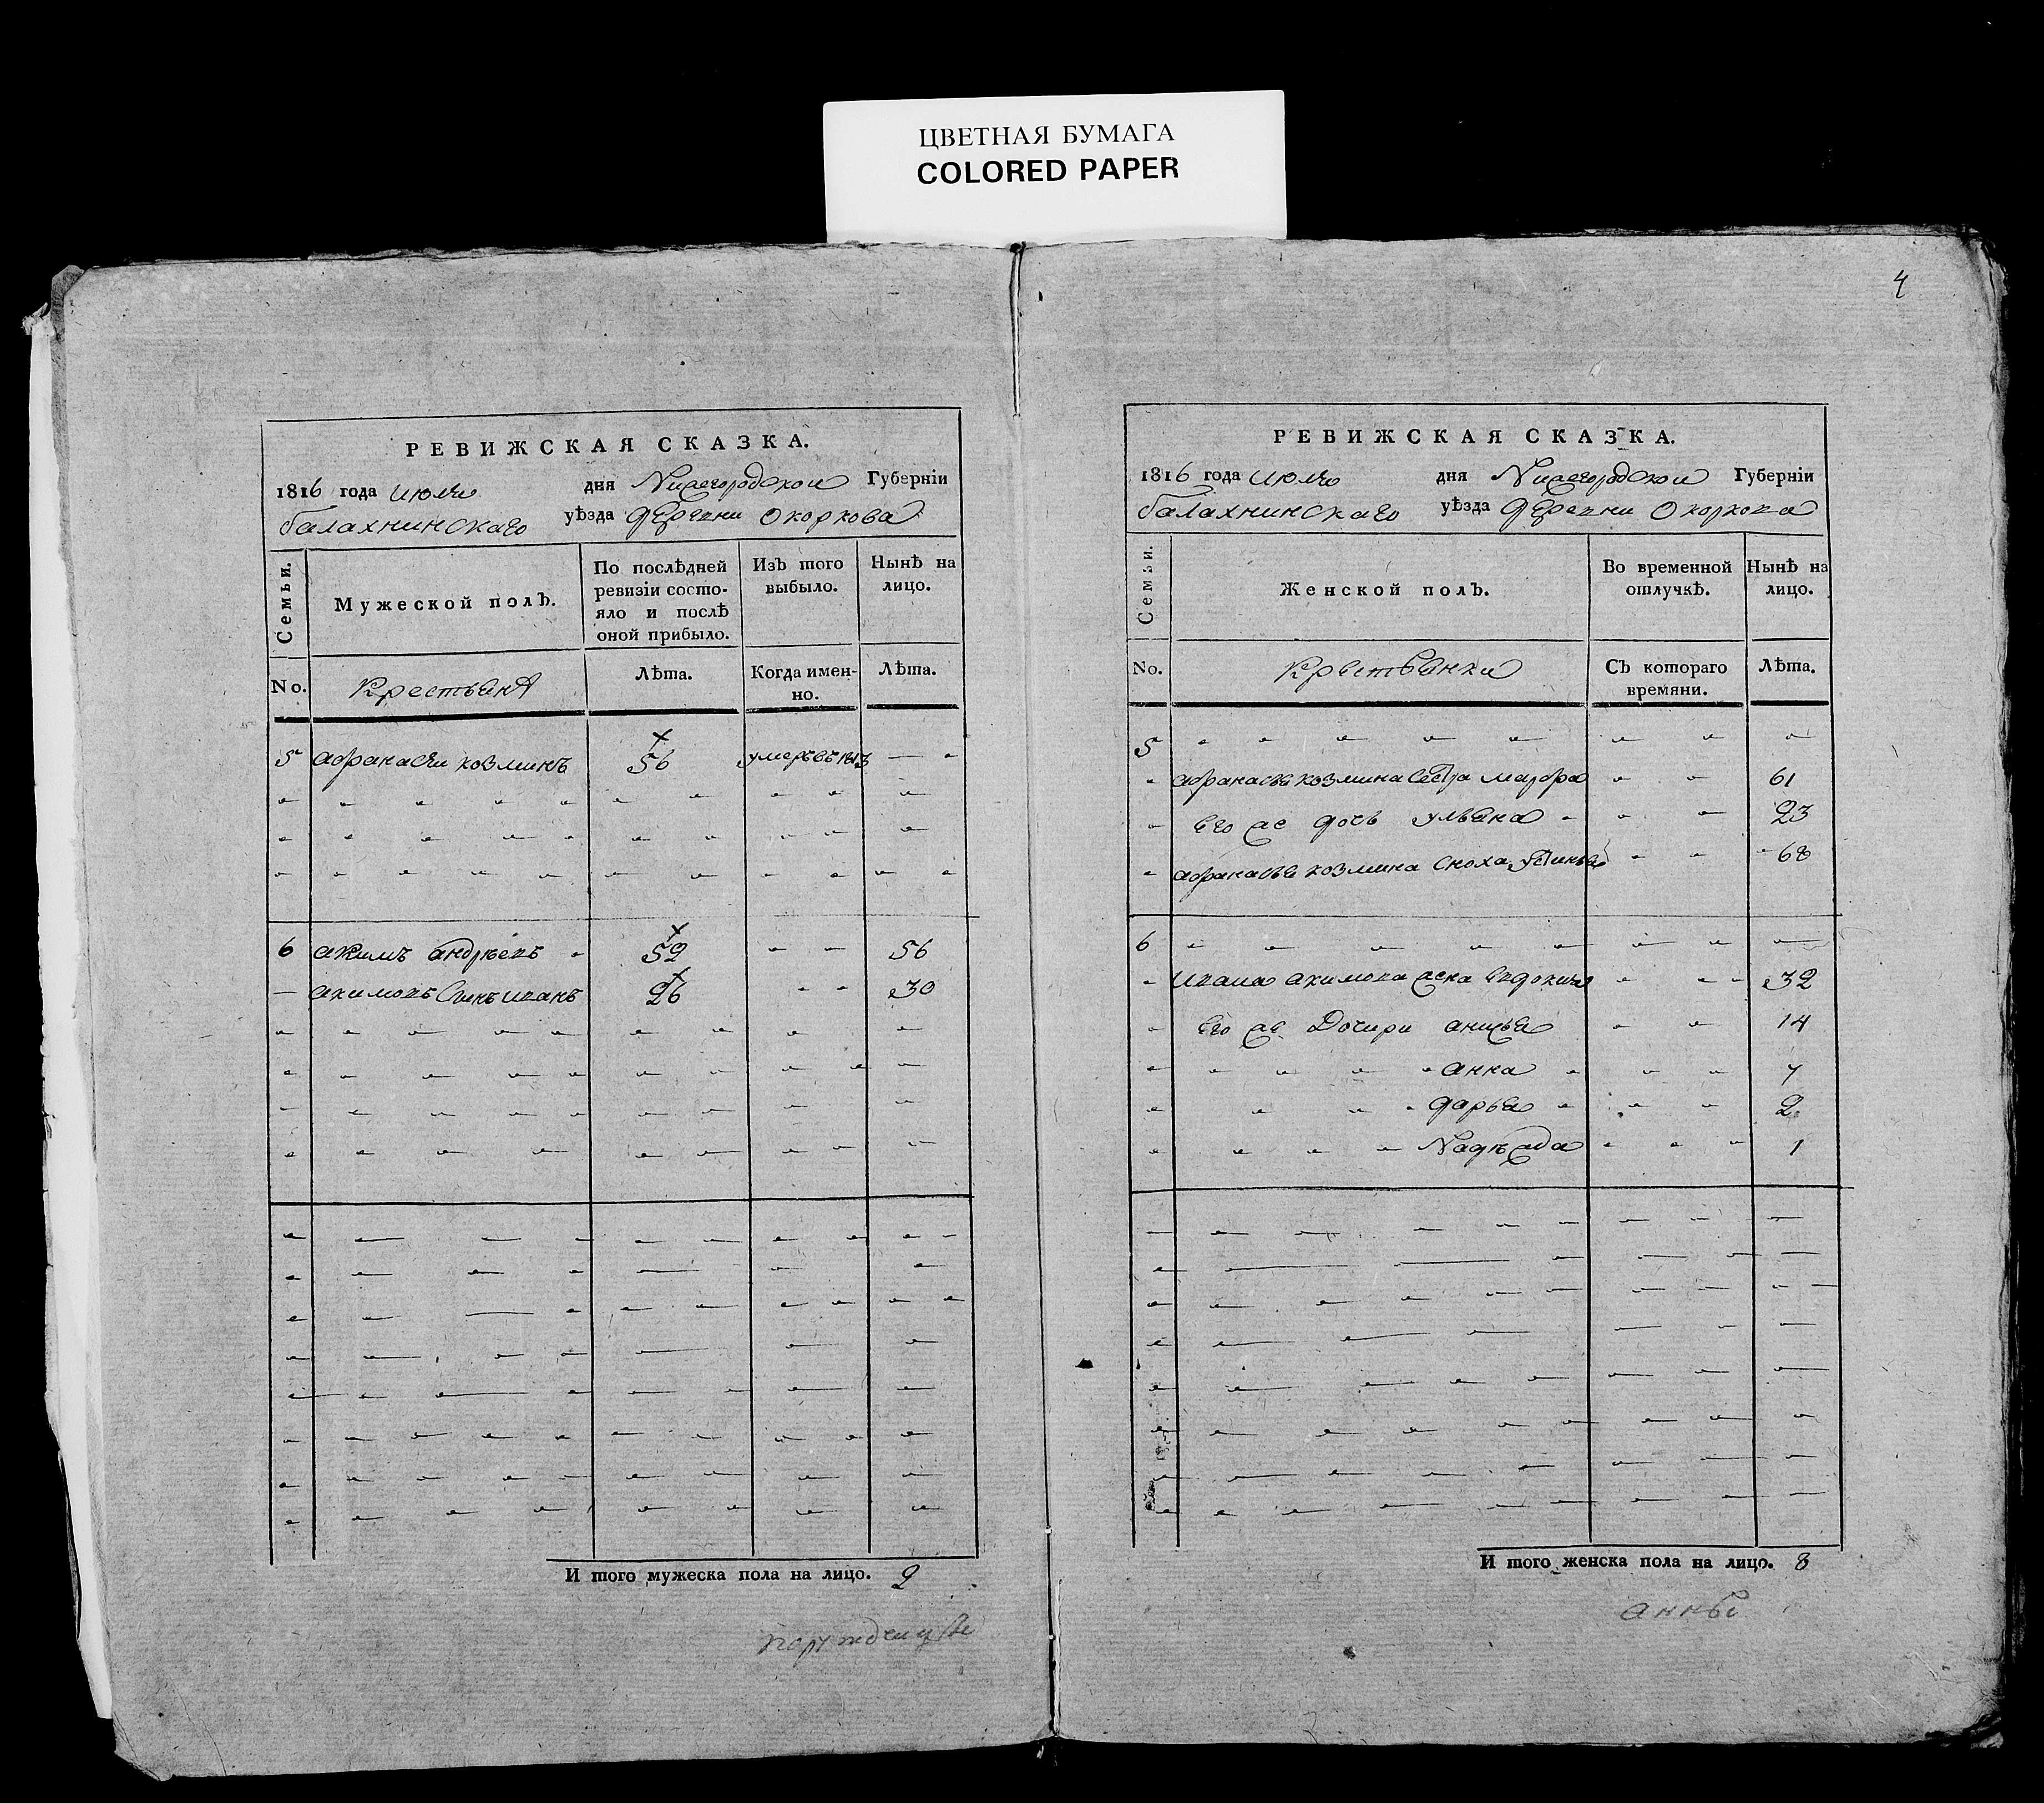 ЦВЕТНАЯ БУМАГА
COLORED PAPER
4
РЕВИЖСКАЯ СКАЗКА.
1816 года июля дня Нижегородской Губерніи
балахнинскаго уѣзда деревни Окоркова
Семьи.
Мужеской полъ.
По послѣдней ревизіи состояло и послѣ оной прибыло.
Изъ того выбыло.
Нынѣ на лицо.
No.
Крестьяня
Лѣта.
Когда именно.
Лѣта.
5 афанасеи козминъ 56 умеръ въ 1813
6 акимъ андрѣевъ 52 56
акимовъ сынъ иванъ 26 30
И того мужеска пола на лицо. 2
РЕВИЖСКАЯ СКАЗКА.
1816 года июля дня Нижегородской Губерніи
балахнинскаго уѣзда деревни Окоркова
Семьи.
Женской полъ.
Во временной отлучкѣ.
Нынѣ на лицо.
No.
Крестьянки
Съ котораго времяни.
Лѣта.
5
афанасья козмина сестра марфа 61
его же дочь ульяна 23
афанасья козмина сноха устинья 68
6
ивана акимова жена евдокия 32
его же дочери анисья 14
анна 7
дарья 2
Надѣжда 1
И того женска пола на лицо. 8
анны